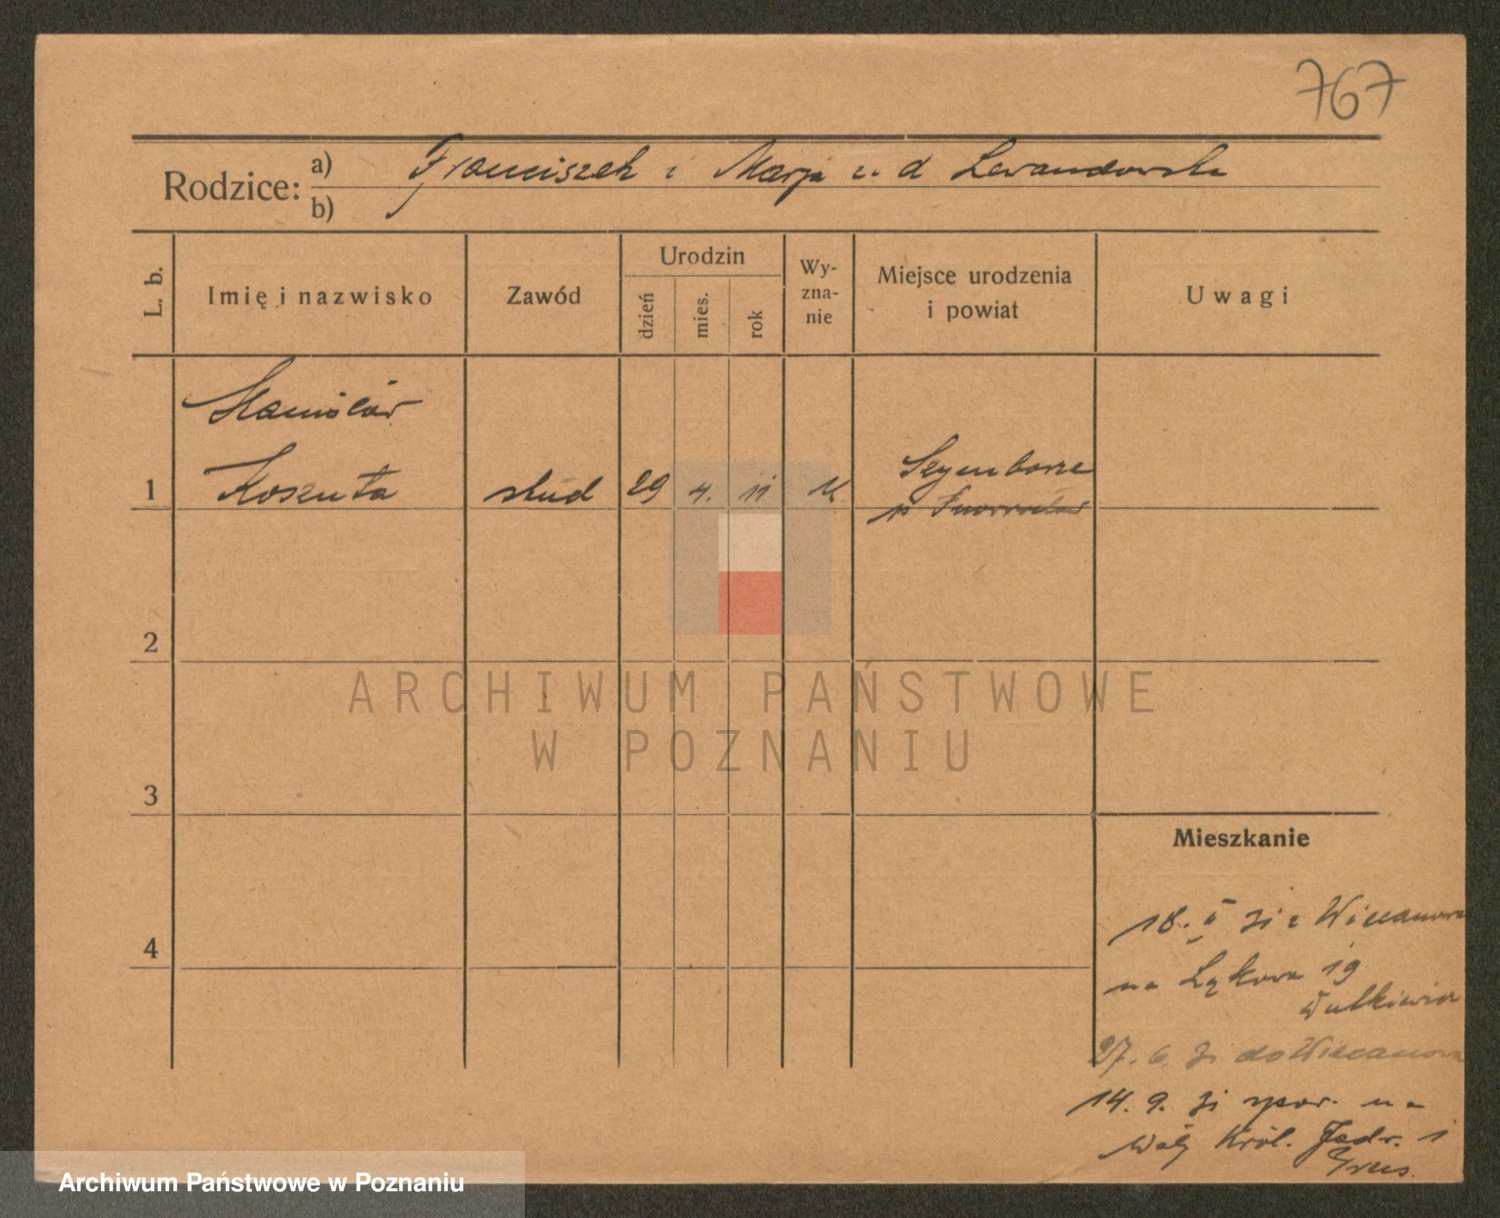 767
Rodzice: a) Franciszek i Marja z d Lewandowska
b)
L. b.
Imię i nazwisko
Zawód
Urodzin
dzień
mies.
rok
Wy-
zna-
nie
Miejsce urodzenia
i powiat
Uwagi
Stanisław
1 Koszuta stud 29 4. 11 k. Szymborze
p Inowrocław
2
3
4
Mieszkanie
18. II z Wiecanowa
na Łąkowa 19
27. 6. do Wiecanowa
14. 9. na
Wały Król. Jadw. 1
ARCHIWUM PAŃSTWOWE
W POZNANIU
Archiwum Państwowe w Poznaniu